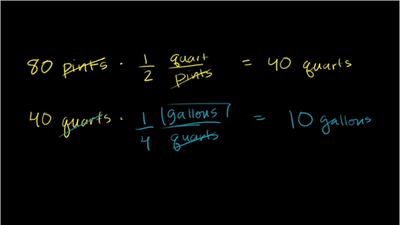 80 pints · 1/2 quart/pints = 40 quarts
40 quarts · 1/4 gallons/quarts = 10 gallons